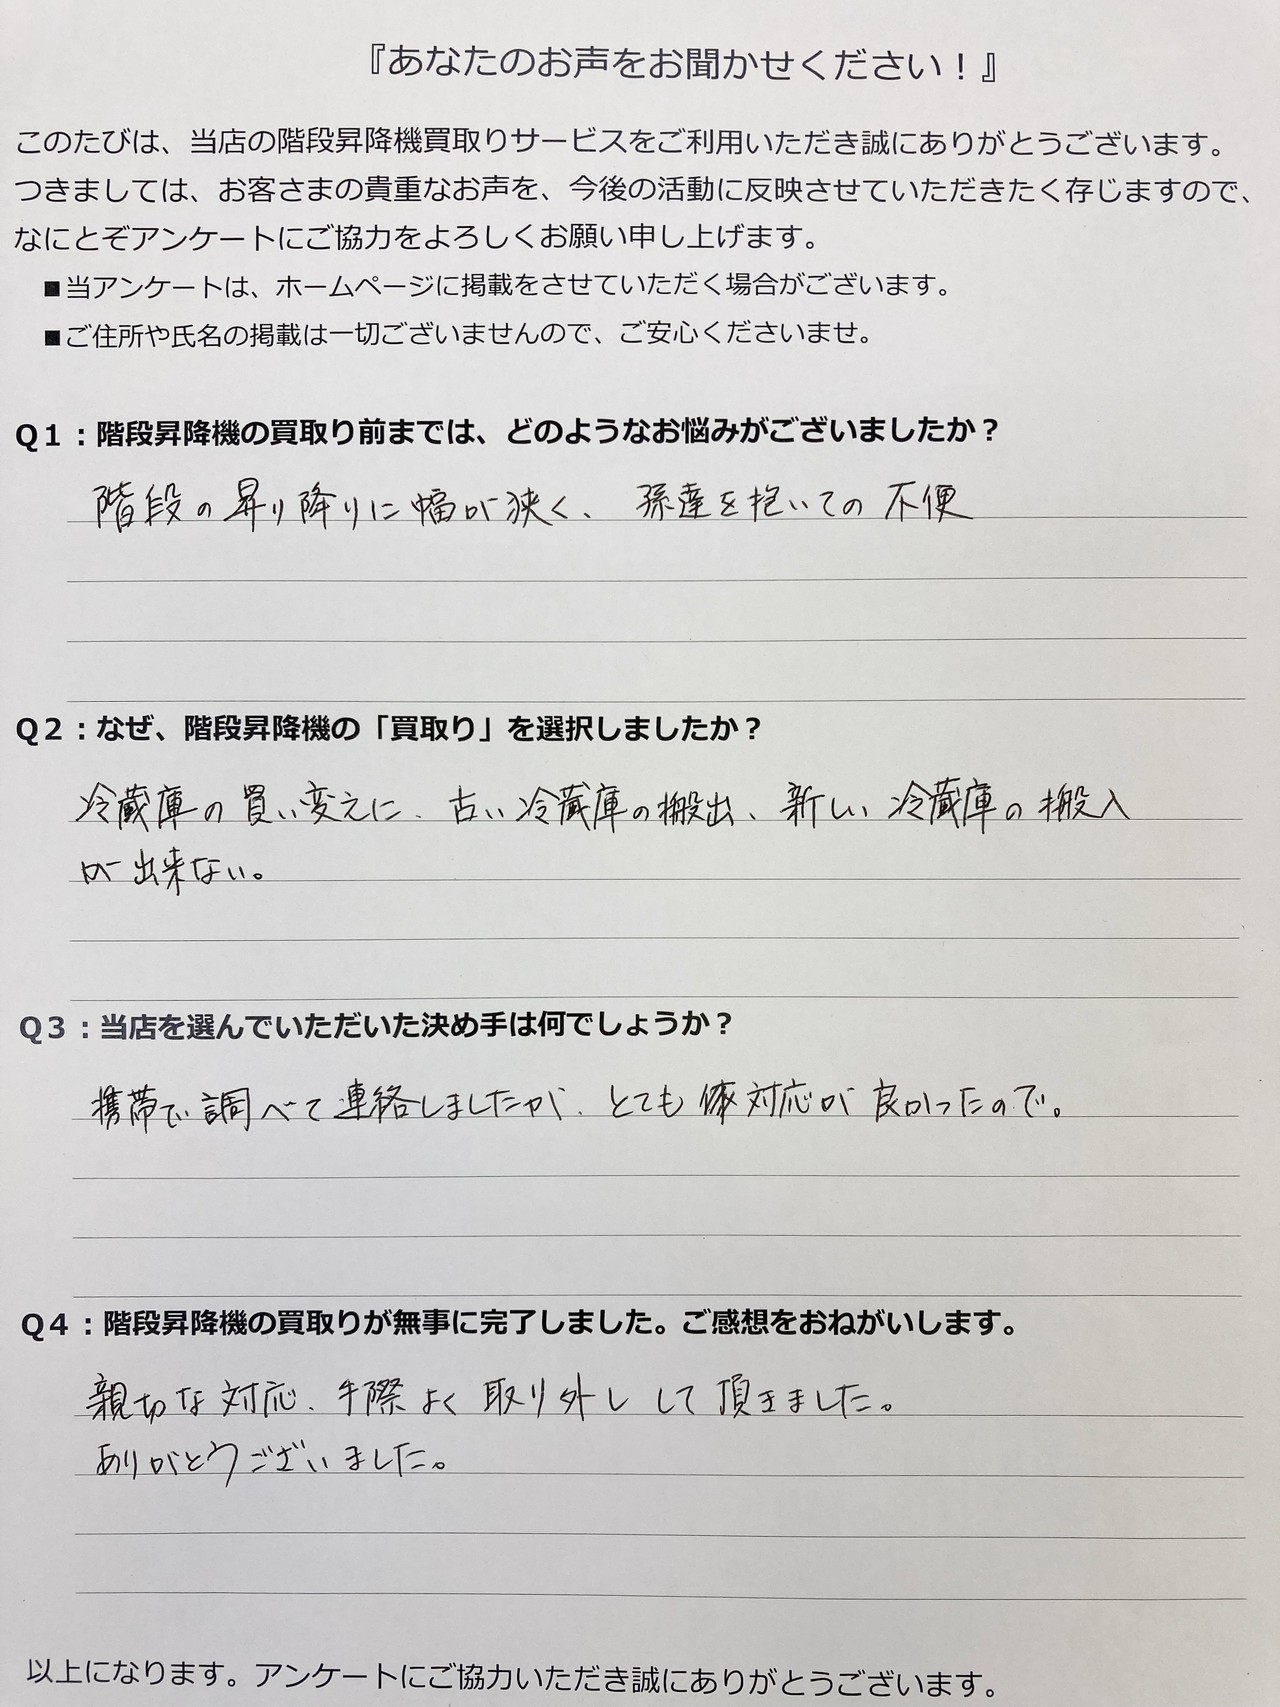 『あなたのお声をお聞かせください！』
このたびは、当店の階段昇降機買取りサービスをご利用いただき誠にありがとうございます。
つきましては、お客さまの貴重なお声を、今後の活動に反映させていただきたく存じますので、
なにとぞアンケートにご協力をよろしくお願い申し上げます。
■当アンケートは、ホームページに掲載をさせていただく場合がございます。
■ご住所や氏名の掲載は一切ございませんので、ご安心くださいませ。
Q１：階段昇降機の買取り前までは、どのようなお悩みがございましたか？
階段の昇り降りに幅が狭く、孫達を抱いての不便
Q２：なぜ、階段昇降機の「買取り」を選択しましたか？
冷蔵庫の買い変えに、古い冷蔵庫の搬出、新しい冷蔵庫の搬入
が出来ない。
Q３：当店を選んでいただいた決め手は何でしょうか？
携帯で調べて連絡しましたが、とても 対応が良かったので。
Q４：階段昇降機の買取りが無事に完了しました。ご感想をおねがいします。
親切な対応、手際よく取り外しして頂きました。
ありがとうございました。
以上になります。アンケートにご協力いただき誠にありがとうございます。